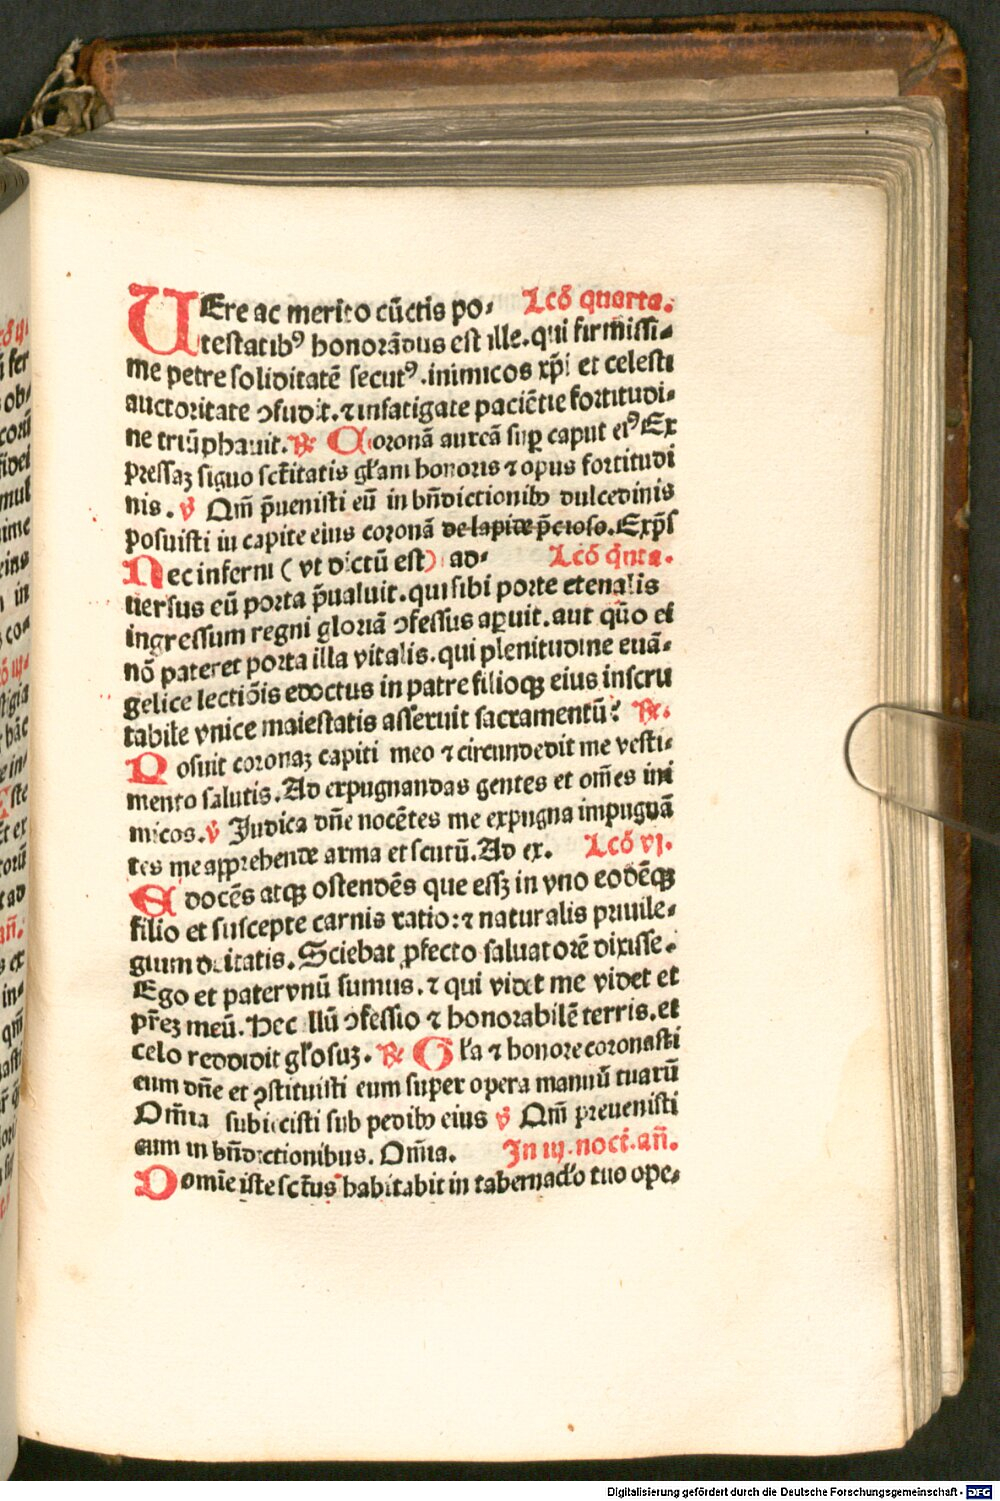 UEre ac merito cūctis po⸗ Lcō quarta.
testatibꝰ honorādus est ille. qui firmissi⸗
me petre soliditatē secutꝰ. inimicos xp̄i et celesti
auctoritate ↄfudit. ⁊ infatigate paciētie fortitudi⸗
ne triūphauit. ℟ Coronā aureā suꝑ caput eiꝰ Ex
pressaꝫ signo sctītatis gl̄am honoris ⁊ opus fortitudi
nis. ℣ Qm̄ p̄uenisti eū in bn̄dictionibꝫ dulcedinis
posuisti in capite eius coronā de lapide p̄cioso. Exp̄s
Nec inferni (vt dictū est) ad⸗ Lcō q̄nta.
uersus eū porta p̄ualuit. qui sibi porte etenalis
ingressum regni gloriā ↄfessus aꝑuit. aut quō ei
nō pateret porta illa vitalis. qui plenitudine euā⸗
gelice lectiōis edoctus in patre filioqꝫ eius inscru
tabile vnice maiestatis asseruit sacramentū? ℟.
Posuit coronaꝫ capiti meo ⁊ circundedit me vesti⸗
mento salutis. Ad expugnandas gentes et om̄es ini
micos. ℣ Judica dn̄e nocētes me expugna impugnā
tes me apprehende arma et scutū. Ad ex. Lcō vj.
Edocēs atqꝫ ostendēs que essꝫ in vno eodēqꝫ
filio et suscepte carnis ratio: ⁊ naturalis priuile⸗
gium deitatis. Sciebat ꝓfecto saluatorē dixisse.
Ego et pater vnū sumus. ⁊ qui videt me videt et
pr̄eꝫ meū. Hec llū ↄfessio ⁊ honorabilē terris. et
celo reddidit gl̄osuꝫ. ℟ Gl̄a ⁊ honore coronasti
eum dn̄e et ꝯstituisti eum super opera manuū tuarū
Om̄ia subiecisti sub pedibꝫ eius ℣ Qm̄ preuenisti
eum in bn̄dictionibus. Om̄ia. Jn iij. noct. an̄.
Domīe iste sctūs habitabit in tabernacl̄o tuo ope⸗
Digitalisierung gefördert durch die Deutsche Forschungsgemeinschaft - DFG